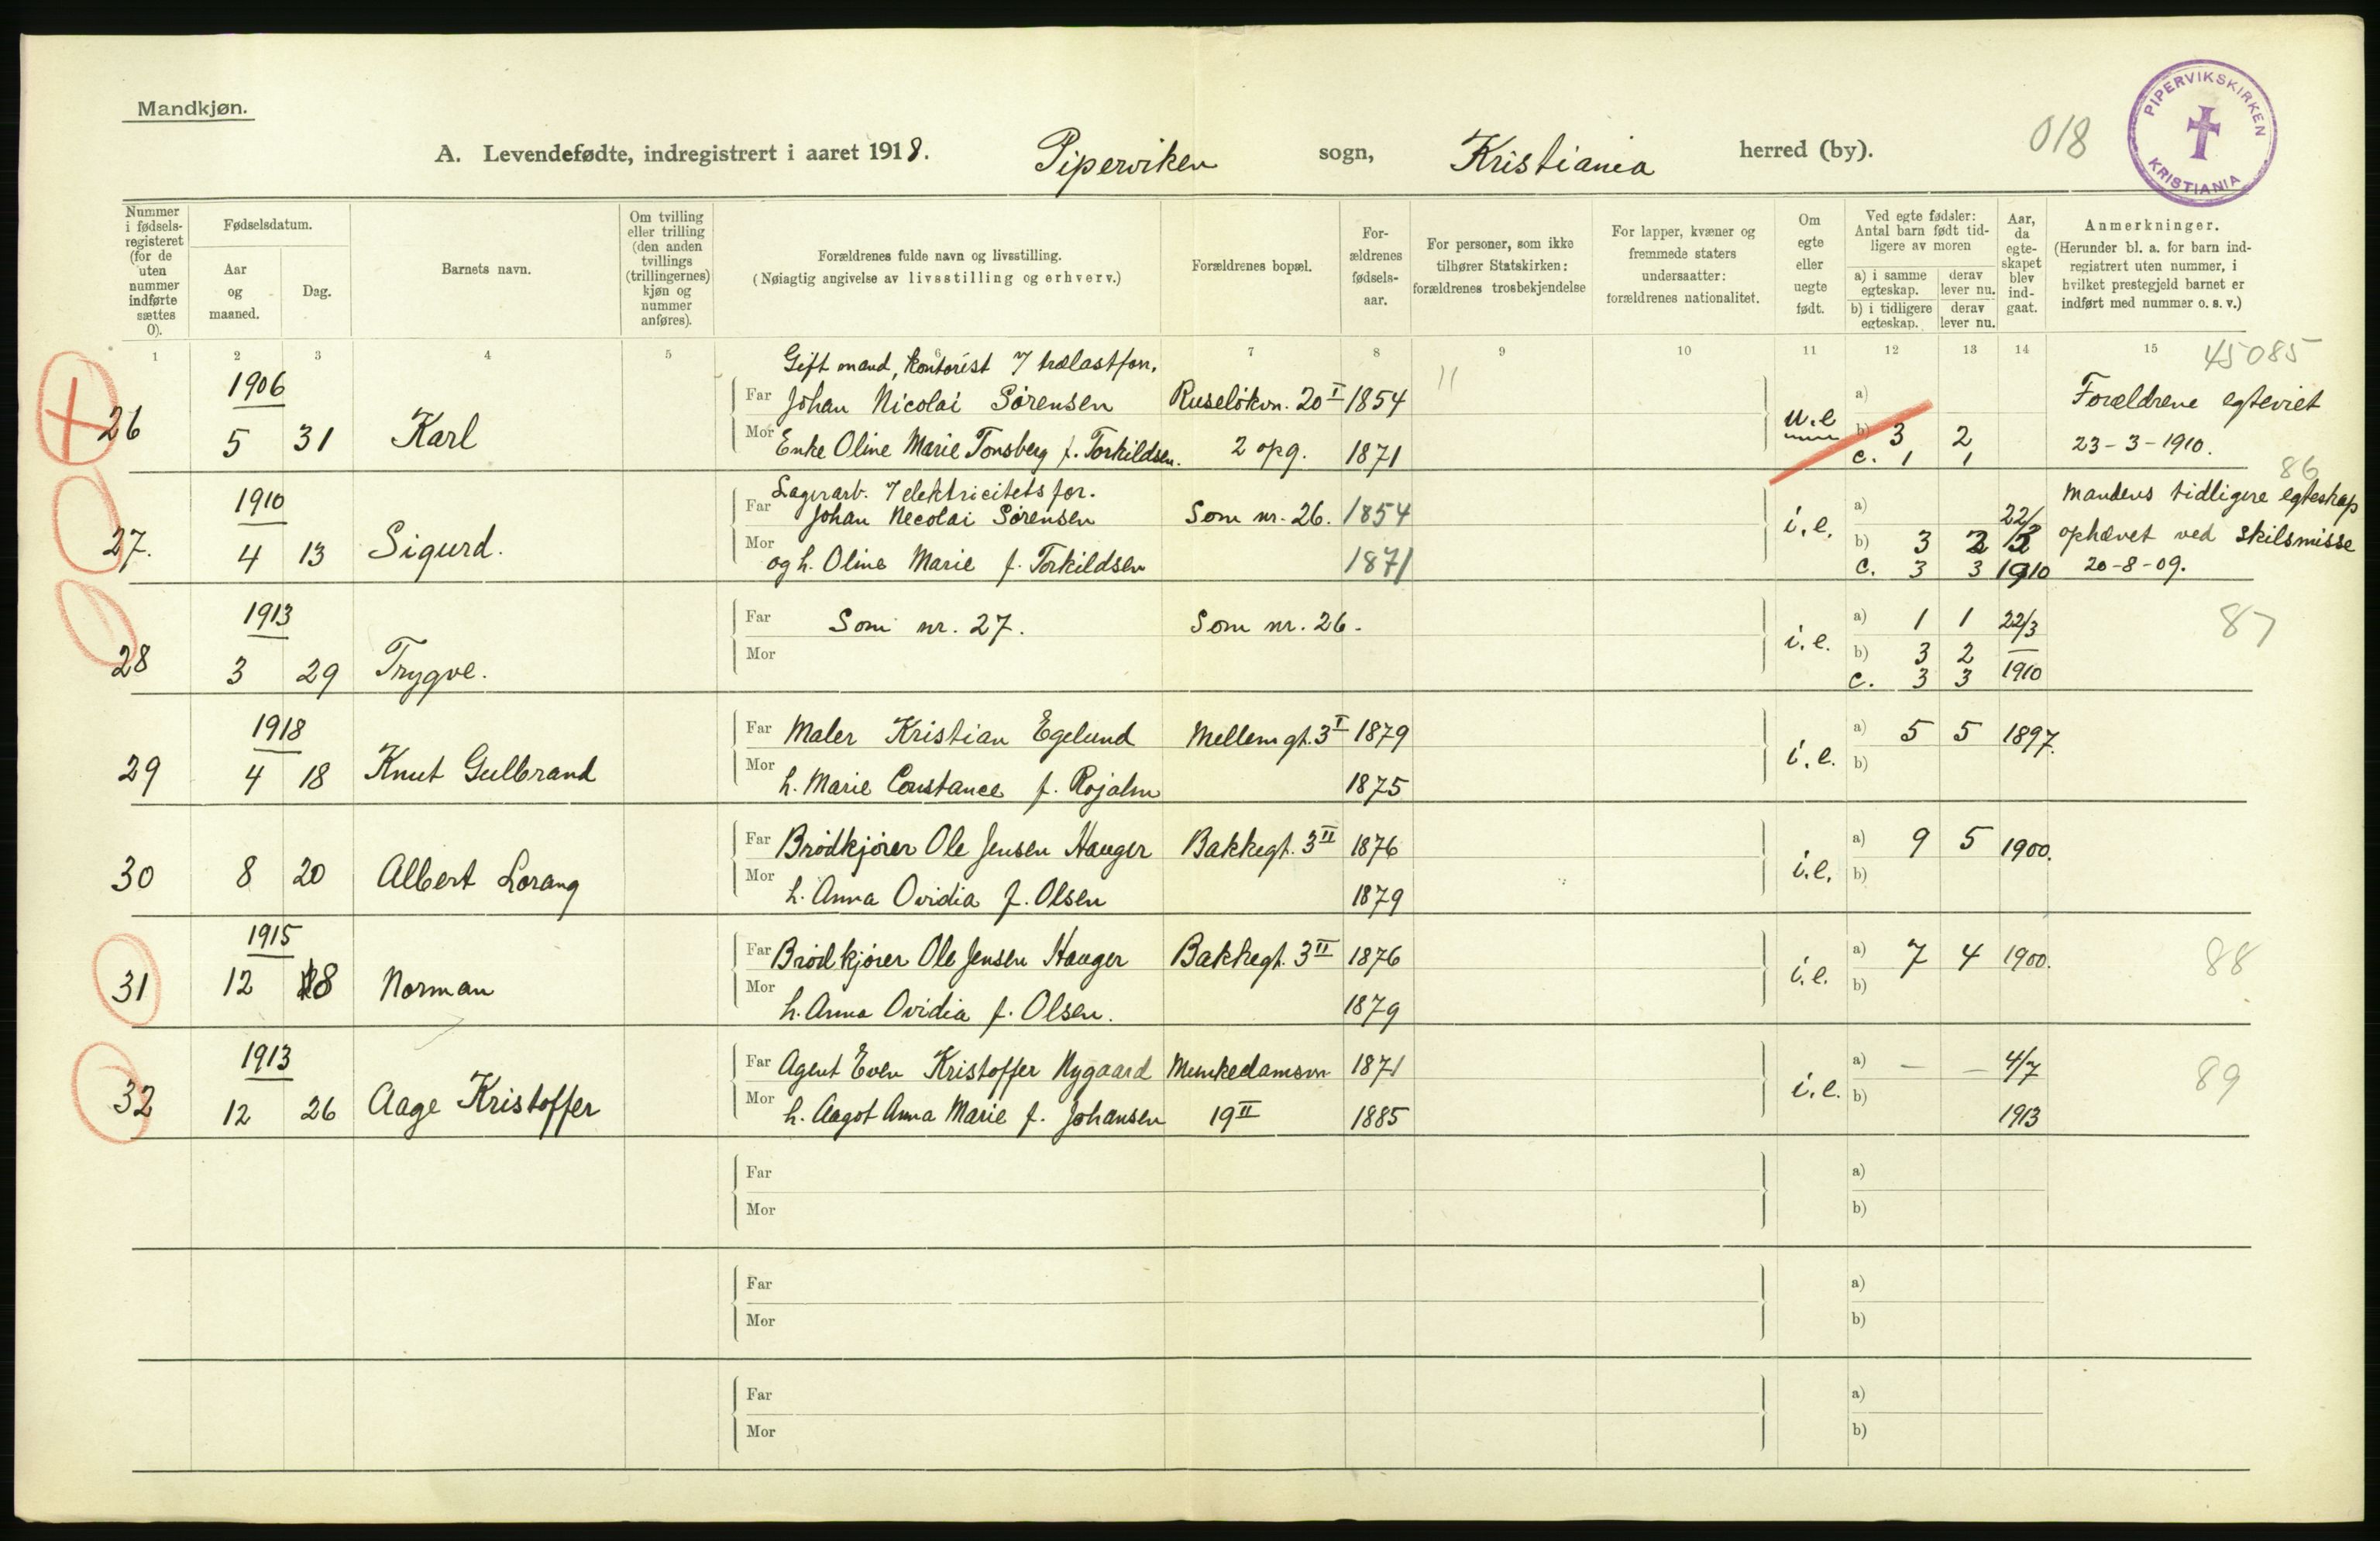 Mandkjøn.
A. Levendefødte, indregistrert i aaret 1918. Piperviken sogn, Kristiania herred (by).
018
PIPERVIKSKIRKEN
KRISTIANIA
Nummer i fødsels-registeret (for de uten nummer indførte sættes 0).
Fødselsdatum.
Aar og maaned.
Dag.
Barnets navn.
Om tvilling eller trilling (den anden tvillings (trillingernes) kjøn og nummer anføres).
Forældrenes fulde navn og livsstilling.
(Nøiagtig angivelse av livsstilling og erhverv.)
Forældrenes bopæl.
For-ældrenes fødsels-aar.
For personer, som ikke tilhører Statskirken: forældrenes trosbekjendelse
For lapper, kvæner og fremmede staters undersaatter: forældrenes nationalitet.
Om egte eller uegte født.
Ved egte fødsler: Antal barn født tid-ligere av moren
a) i samme egteskap.
derav lever nu.
b) i tidligere egteskap.
derav lever nu.
Aar, da egte-skapet blev ind-gaat.
Anmerkninger.
(Herunder bl. a. for barn ind-registrert uten nummer, i hvilket prestegjeld barnet er indført med nummer o. s. v.)
1 2 3 4 5 6 7 8 9 10 11 12 13 14 15
45085
Gift mand, kontorist
1906
Far Johan Nicolai Sørensen Ruseløkvn. 20 I 1854 11 a) Forældrene egteviet
26 5 31 Karl u.e b) 3 2 23-3-1910.
Mor Enke Oline Marie Tonsberg f. Torkildsen. 2 opg. 1871 c. 1 1
86
1910
Lagerarb. 7 elektricitetsfor.
Far Johan Necolai Sørensen Som nr. 26. 1854 a) 22/3 Mandens tidligere egteskap
27. 4 13 Sigurd. i.e. b) 3 2 ophævet ved skilsmisse
Mor og h. Oline Marie f. Torkildsen 1871 c. 3 3 1910 20-8-09.
1913
Far Som nr. 27. Som nr. 26. a) 1 1 22/3 87
28 3 29 Trygve. i.e. b) 3 2
Mor c. 3 3 1910
1918
Far Maler Kristian Egelund Mellemgt. 3 I 1879 a) 5 5 1897.
29 4 18 Knut Gulbrand i.e. b)
Mor h. Marie Constance f. Rojalm 1875
Far Brødkjører Ole Jensen Hauger Bakkegt. 3 II 1876 a) 9 5 1900.
30 8 20 Albert Lorang i.e. b)
Mor h. Anna Ovidia f. Olsen 1879
1915
Far Brødkjører Ole Jensen Hauger Bakkegt. 3 II 1876 a) 7 4 1900. 88
31 12 8 Norman i.e. b)
Mor h. Anna Ovidia f. Olsen. 1879
1913
Far Agent Even Kristoffer Nygaard Munkedamsvn 1871 a) — — 4/7 89
32 12 26 Aage Kristoffer i.e. b)
Mor h. Aagot Anna Marie f. Johansen 19 II 1885 1913
Far a)
Mor b)
Far a)
Mor b)
Far a)
Mor b)